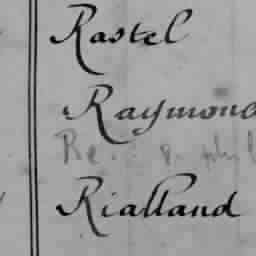 Rastel
Raymond
Rialland